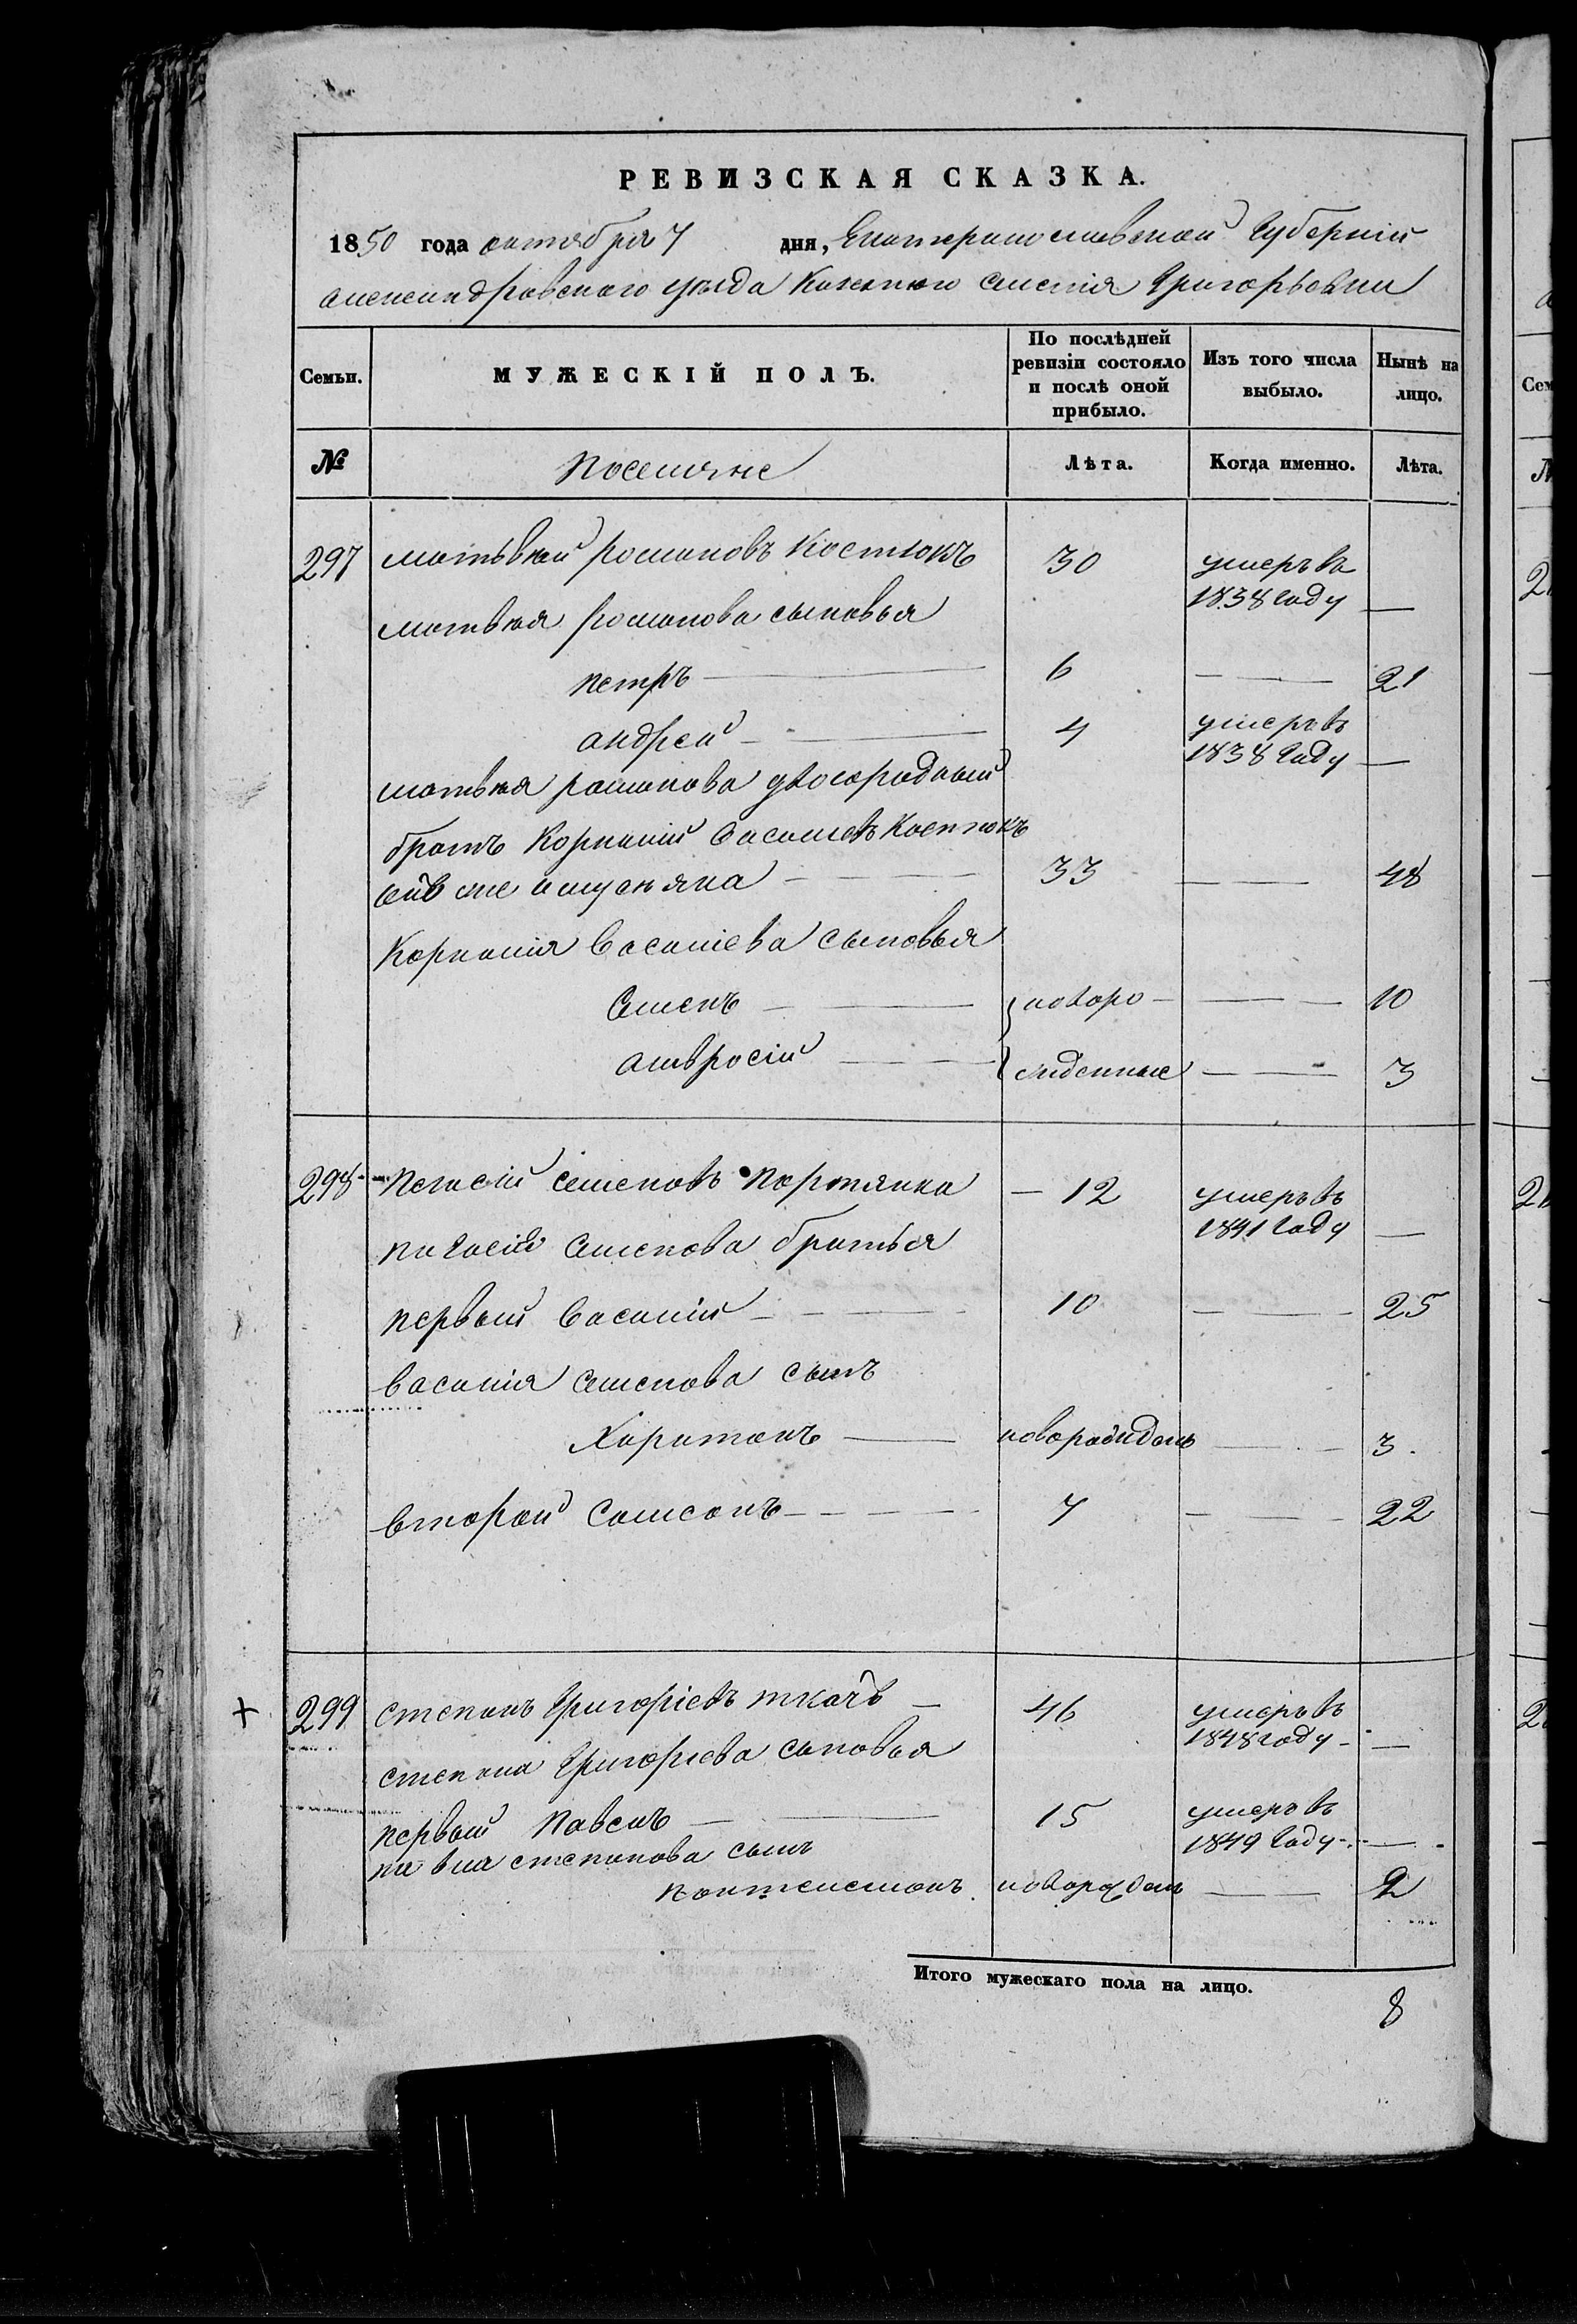 РЕВИЗСКАЯ СКАЗКА.
1850 года октября 7 дня, Екатеринославской Губернiи
Александровского уѣзда Казенного селенiя Григорьевки
Семьи. МУЖЕСКIЙ ПОЛЪ. По послѣдней ревизiи состояло и послѣ оной прибыло. Изъ того числа выбыло. Нынѣ на лицо.
№ Поселяне Лѣта. Когда именно. Лѣта.
297 матвѣй романовъ Костюкъ 30 умеръ въ
1838 году —
матвѣя романова сыновья
петръ — 6 — 21
андрей — 4 умеръ въ
1838 году —
матвѣя романова двоюродный
братъ Корнилiй Васильевъ Костюкъ
онъ же — 33 — 48
Корнилiя Василiева сыновья
Семенъ — новоро — 10
амвросiй — жденные — 3
298 Пегасiй Семеновъ Портянка — 12 умеръ въ
1841 году —
пигасiя Семенова братья
первый Василiй — 10 — 25
василiя Семенова сынъ
Харитонъ — новорожденъ — 3.
второй Самсонъ — 7 — 22
299 степанъ Григорiевъ ткачъ — 46 умеръ въ
1848 году — —
степана Григорiева сыновья
первый Павелъ — 15 умеръ въ
1849 году — —
павла степанова сынъ
пантелемонъ новорожденъ — 2
Итого мужескаго пола на лицо. 8